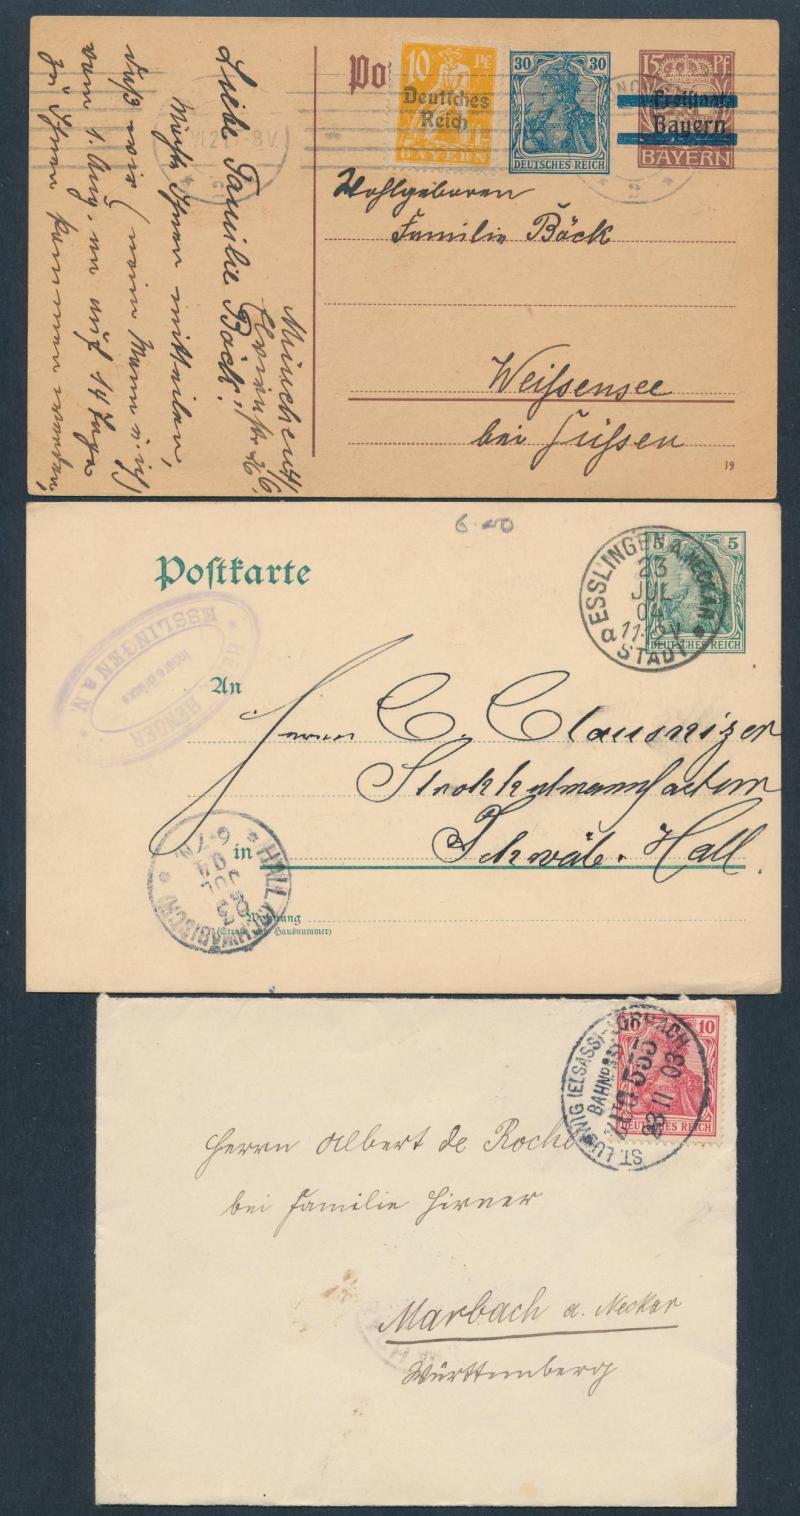 10 Pf
Deutsches
Reich
BAYERN
30 30
DEUTSCHES REICH
15 PF
Freistaat
Bayern
BAYERN
Wohlgeboren
Familie Böck
Weissensee
bei Füssen
19
München
Liebe Familie Böck!
Möchte Ihnen mitteilen,
daß wir (mein Mann u. ich)
vom 1. Aug. an auf 14 Tage
zu Ihnen kommen werden,
6.00
Postkarte
5 5
DEUTSCHES REICH
ESSLINGEN A. NECKAR
23
JUL
04
STADT
RENGER
Innere Brücke
ESSLINGEN a/N.
An
Herrn C. Clausnizer
Strohhutmanufactur
in Schwäb. Hall.
HALL (SCHWÄBISCH)
JUL
04
6-7N.
Wohnung
(Straße und Hausnummer)
10 10
DEUTSCHES REICH
ST. LUDWIG (ELSASS)-
BAHNPOST
ZUG 555
28 11 03
Herrn Albert de Roche
bei Familie Hirner
Marbach a. Neckar
Württemberg